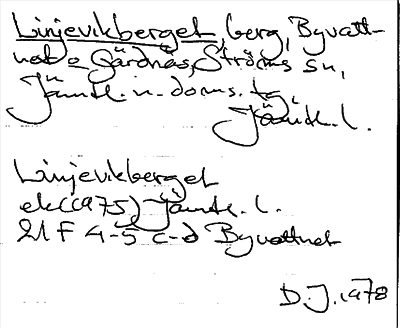 Linjevikberget, berg, Byvatt-
net o Gärdnäs, Ströms sn,
Jämtl. n. doms. tg,
Jämtl. l.
Linjevikberget
ek(1975) Jämtl. l.
21 F 4-5 c-d Byvattnet
D. J. 1978